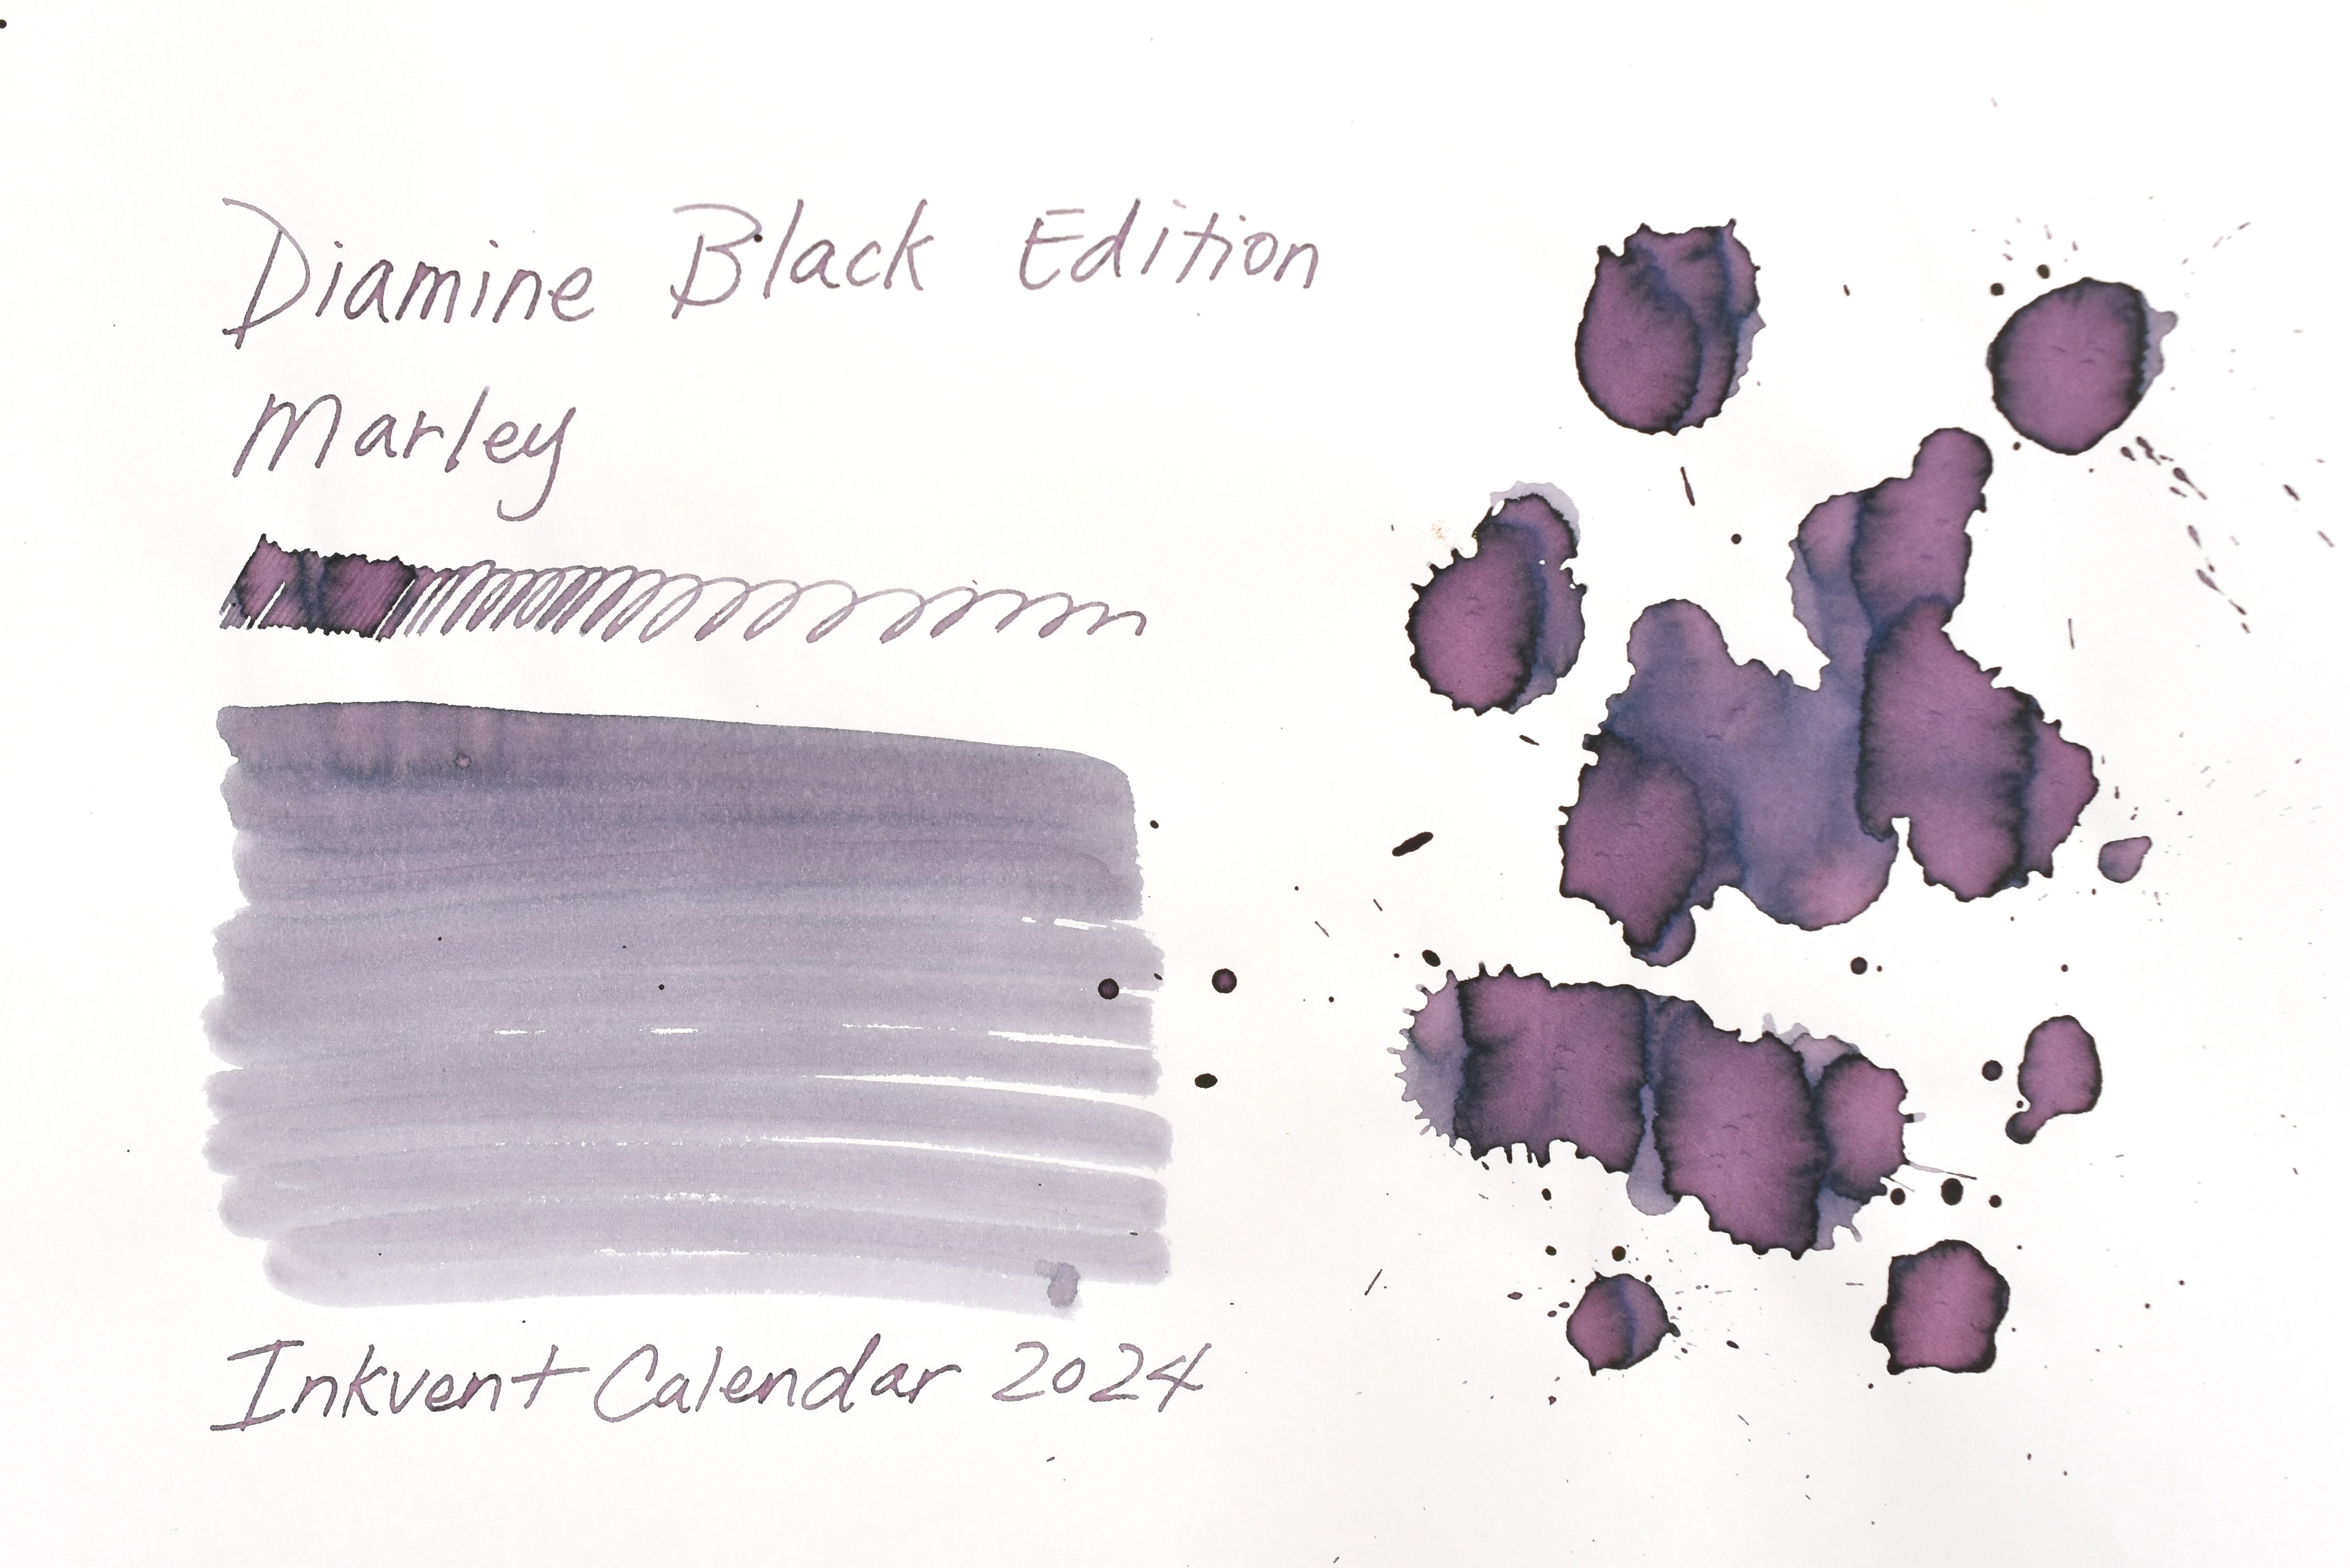 Diamine Black Edition
Marley
Inkvent Calendar 2024